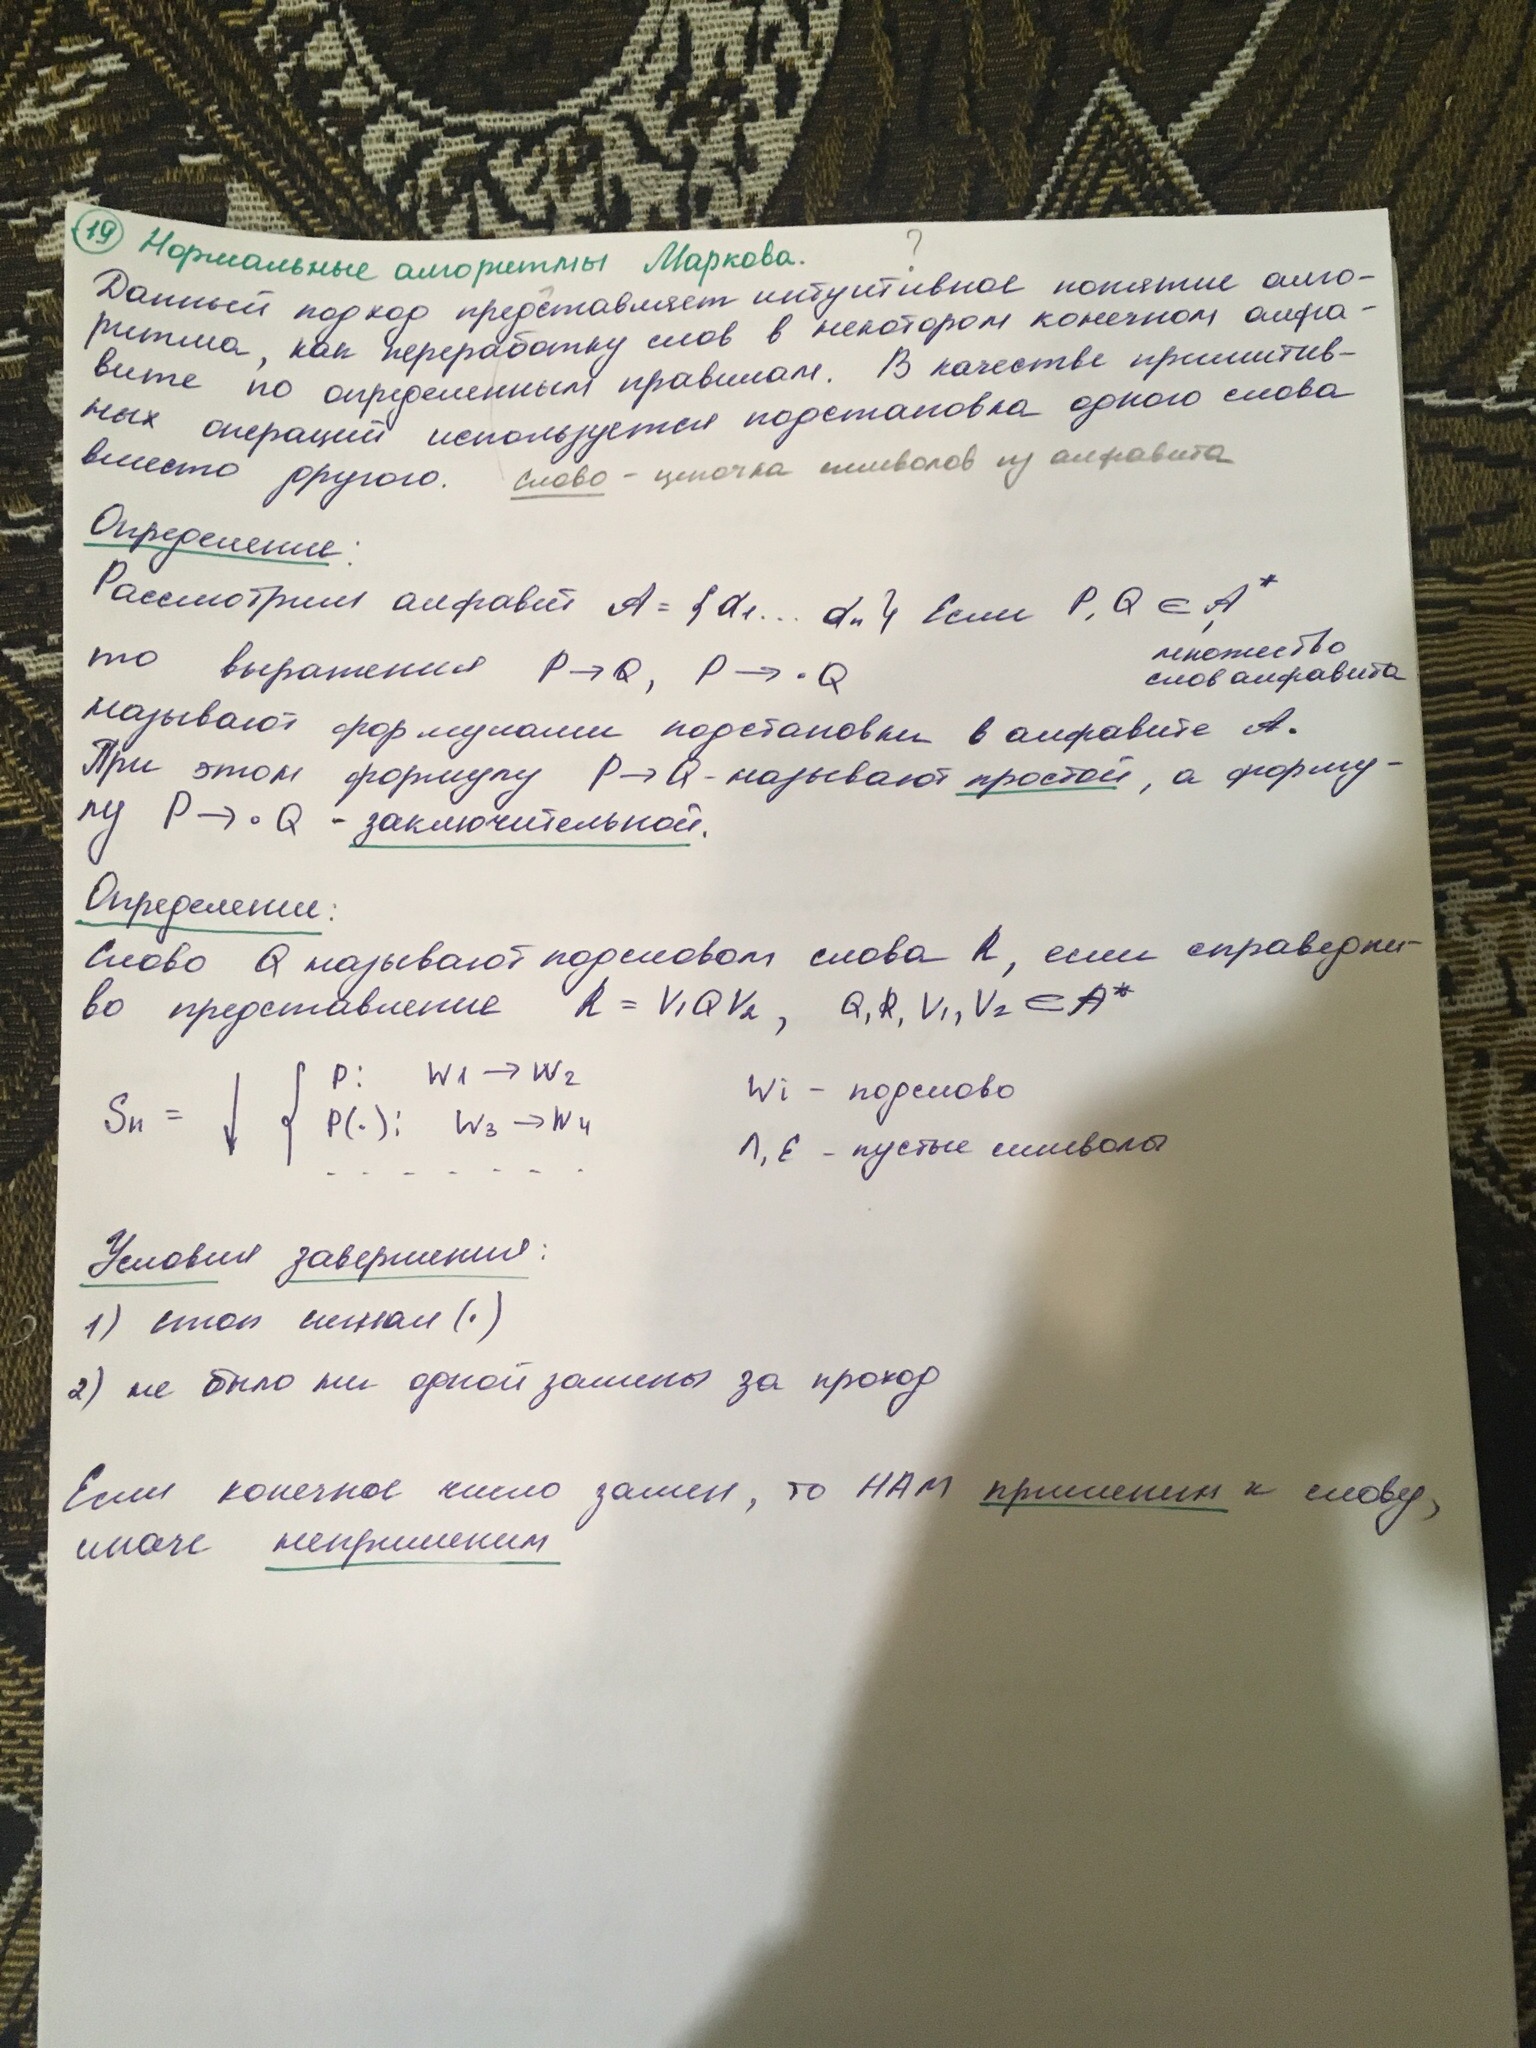 19 Нормальные алгоритмы Маркова. ?
Данный подход представляет интуитивное понятие алго-
ритма, как переработку слов в некотором конечном алфа-
вите по определенным правилам. В качестве примитив-
ных операций используется подстановка одного слова
вместо другого. слово - цепочка символов из алфавита
Определение:
Рассмотрим алфавит A = {α₁... αₙ} Если P, Q ∈ A*
множество
слов алфавита
то выражения P → Q, P → ·Q
называют формулами подстановки в алфавите A.
При этом формулу P → Q - называют простой, а форму-
лу P → ·Q - заключительной.
Определение:
Слово Q называют подсловом слова R, если справедли-
во представление R = V₁QV₂, Q, R, V₁, V₂ ∈ A*
Sn = ↓ { P: W1 → W2
P(·): W3 → W4
- - - - - - - -
Wi - подслово
Λ, ε - пустые символы
Условия завершения:
1) стоп сигнал (·)
2) не было ни одной замены за проход
Если конечное число замен, то НАМ применим к слову,
иначе неприменим